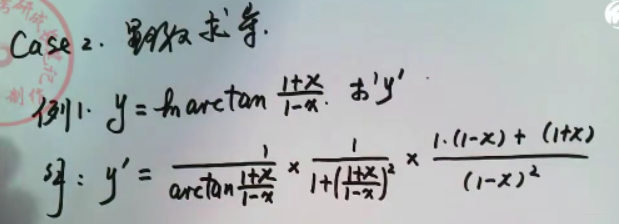 Case 2. 复合函数求导.
例1. y = ln arctan \frac{1+x}{1-x}. 求 y'
解: y' = \frac{1}{arctan\frac{1+x}{1-x}} × \frac{1}{1+(\frac{1+x}{1-x})^2} × \frac{1·(1-x) + (1+x)}{(1-x)^2}